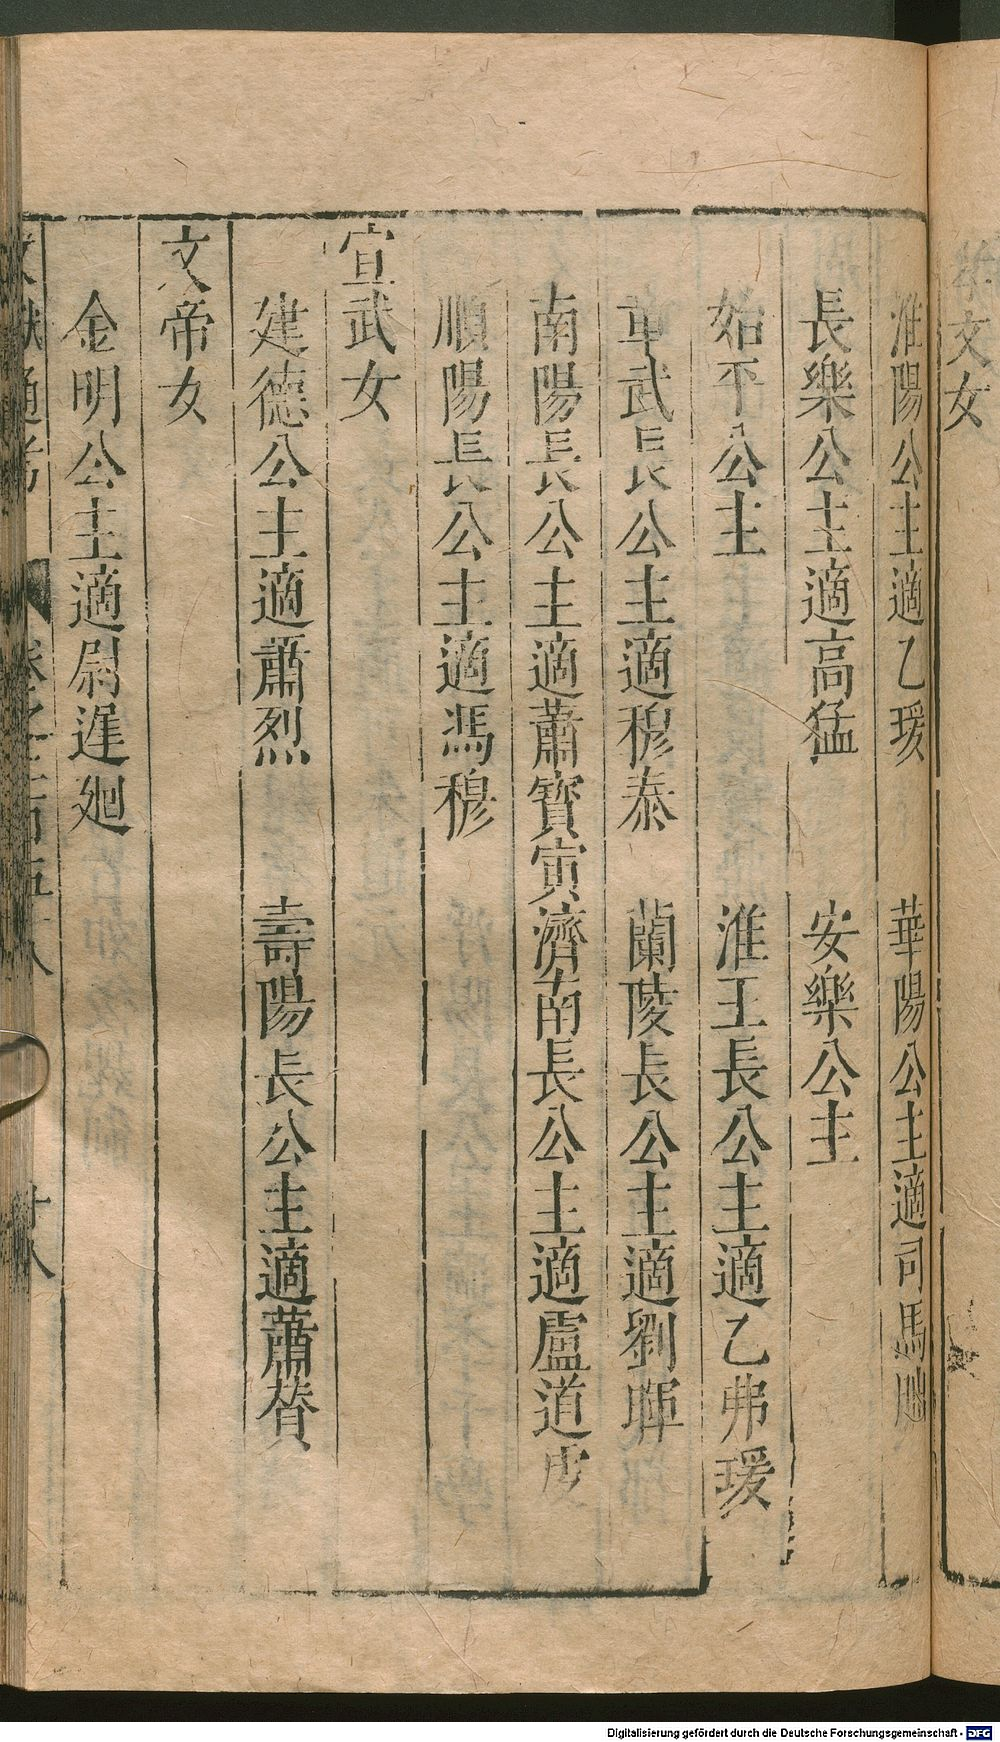 孝文女
淮陽公主適乙瑗 華陽公主適司馬朏
長樂公主適高猛 安樂公主
始平公主 淮王長公主適乙弗瑗
章武長公主適穆泰 蘭陵長公主適劉暉
南陽長公主適蕭寶寅 濟南長公主適盧道虔
順陽長公主適馮穆
宣武女
建德公主適蕭烈 壽陽長公主適蕭贊
文帝女
金明公主適尉遲廻
文獻通考 卷之二百五十八 廿八
Digitalisierung gefördert durch die Deutsche Forschungsgemeinschaft - DFG